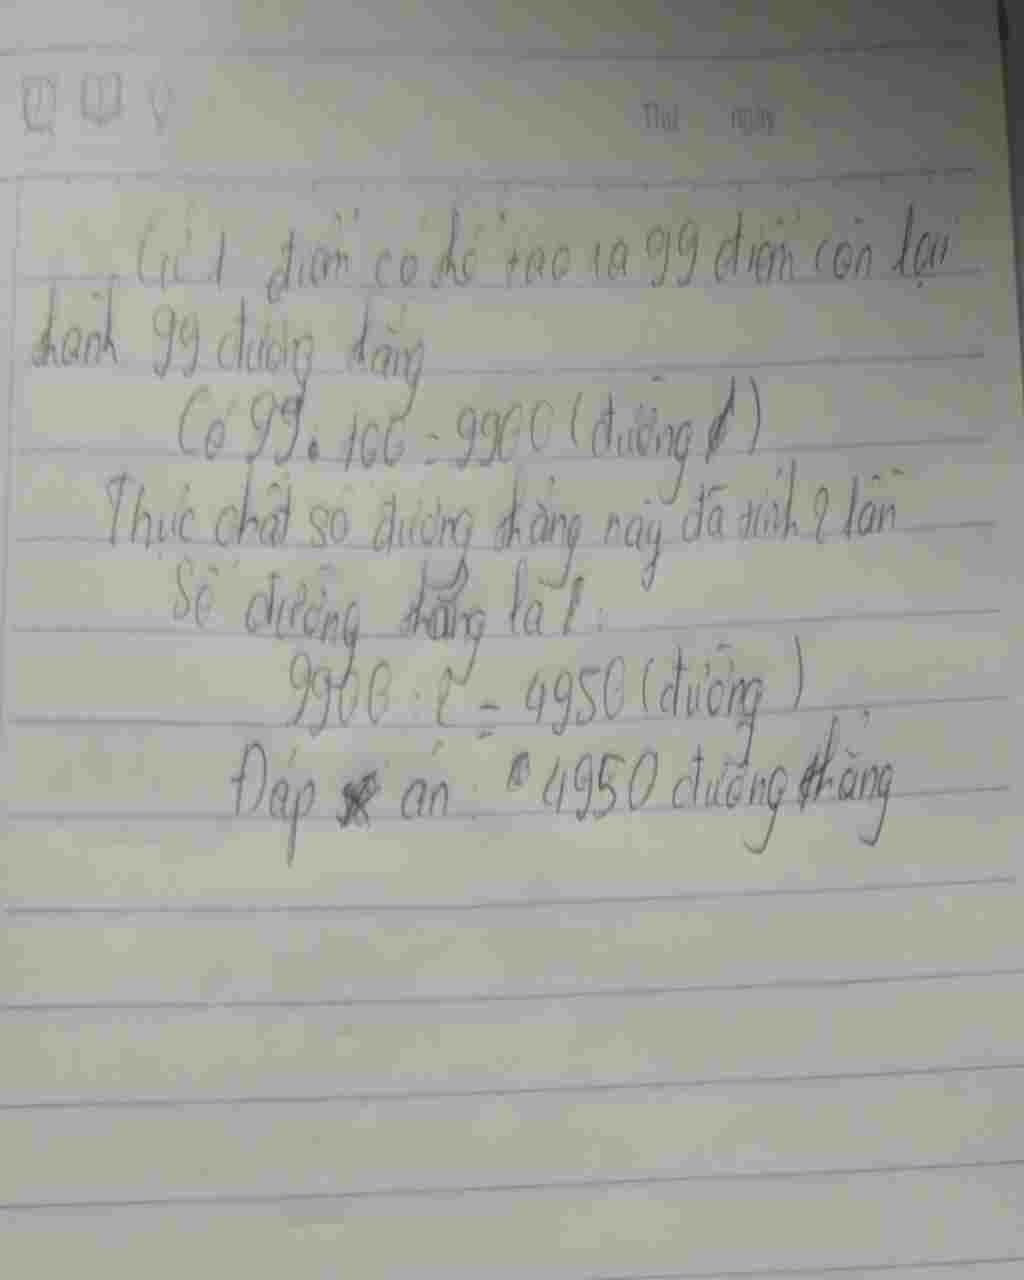 Thứ ngày
Cứ 1 điểm có thể tạo ra 99 điểm còn lại
thành 99 đường thẳng
Có 99. 100 = 9900 (đường)
Thực chất số đường thẳng này đã tính 2 lần
Số đường thẳng là:
9900 : 2 = 4950 (đường)
Đáp án : 4950 đường thẳng